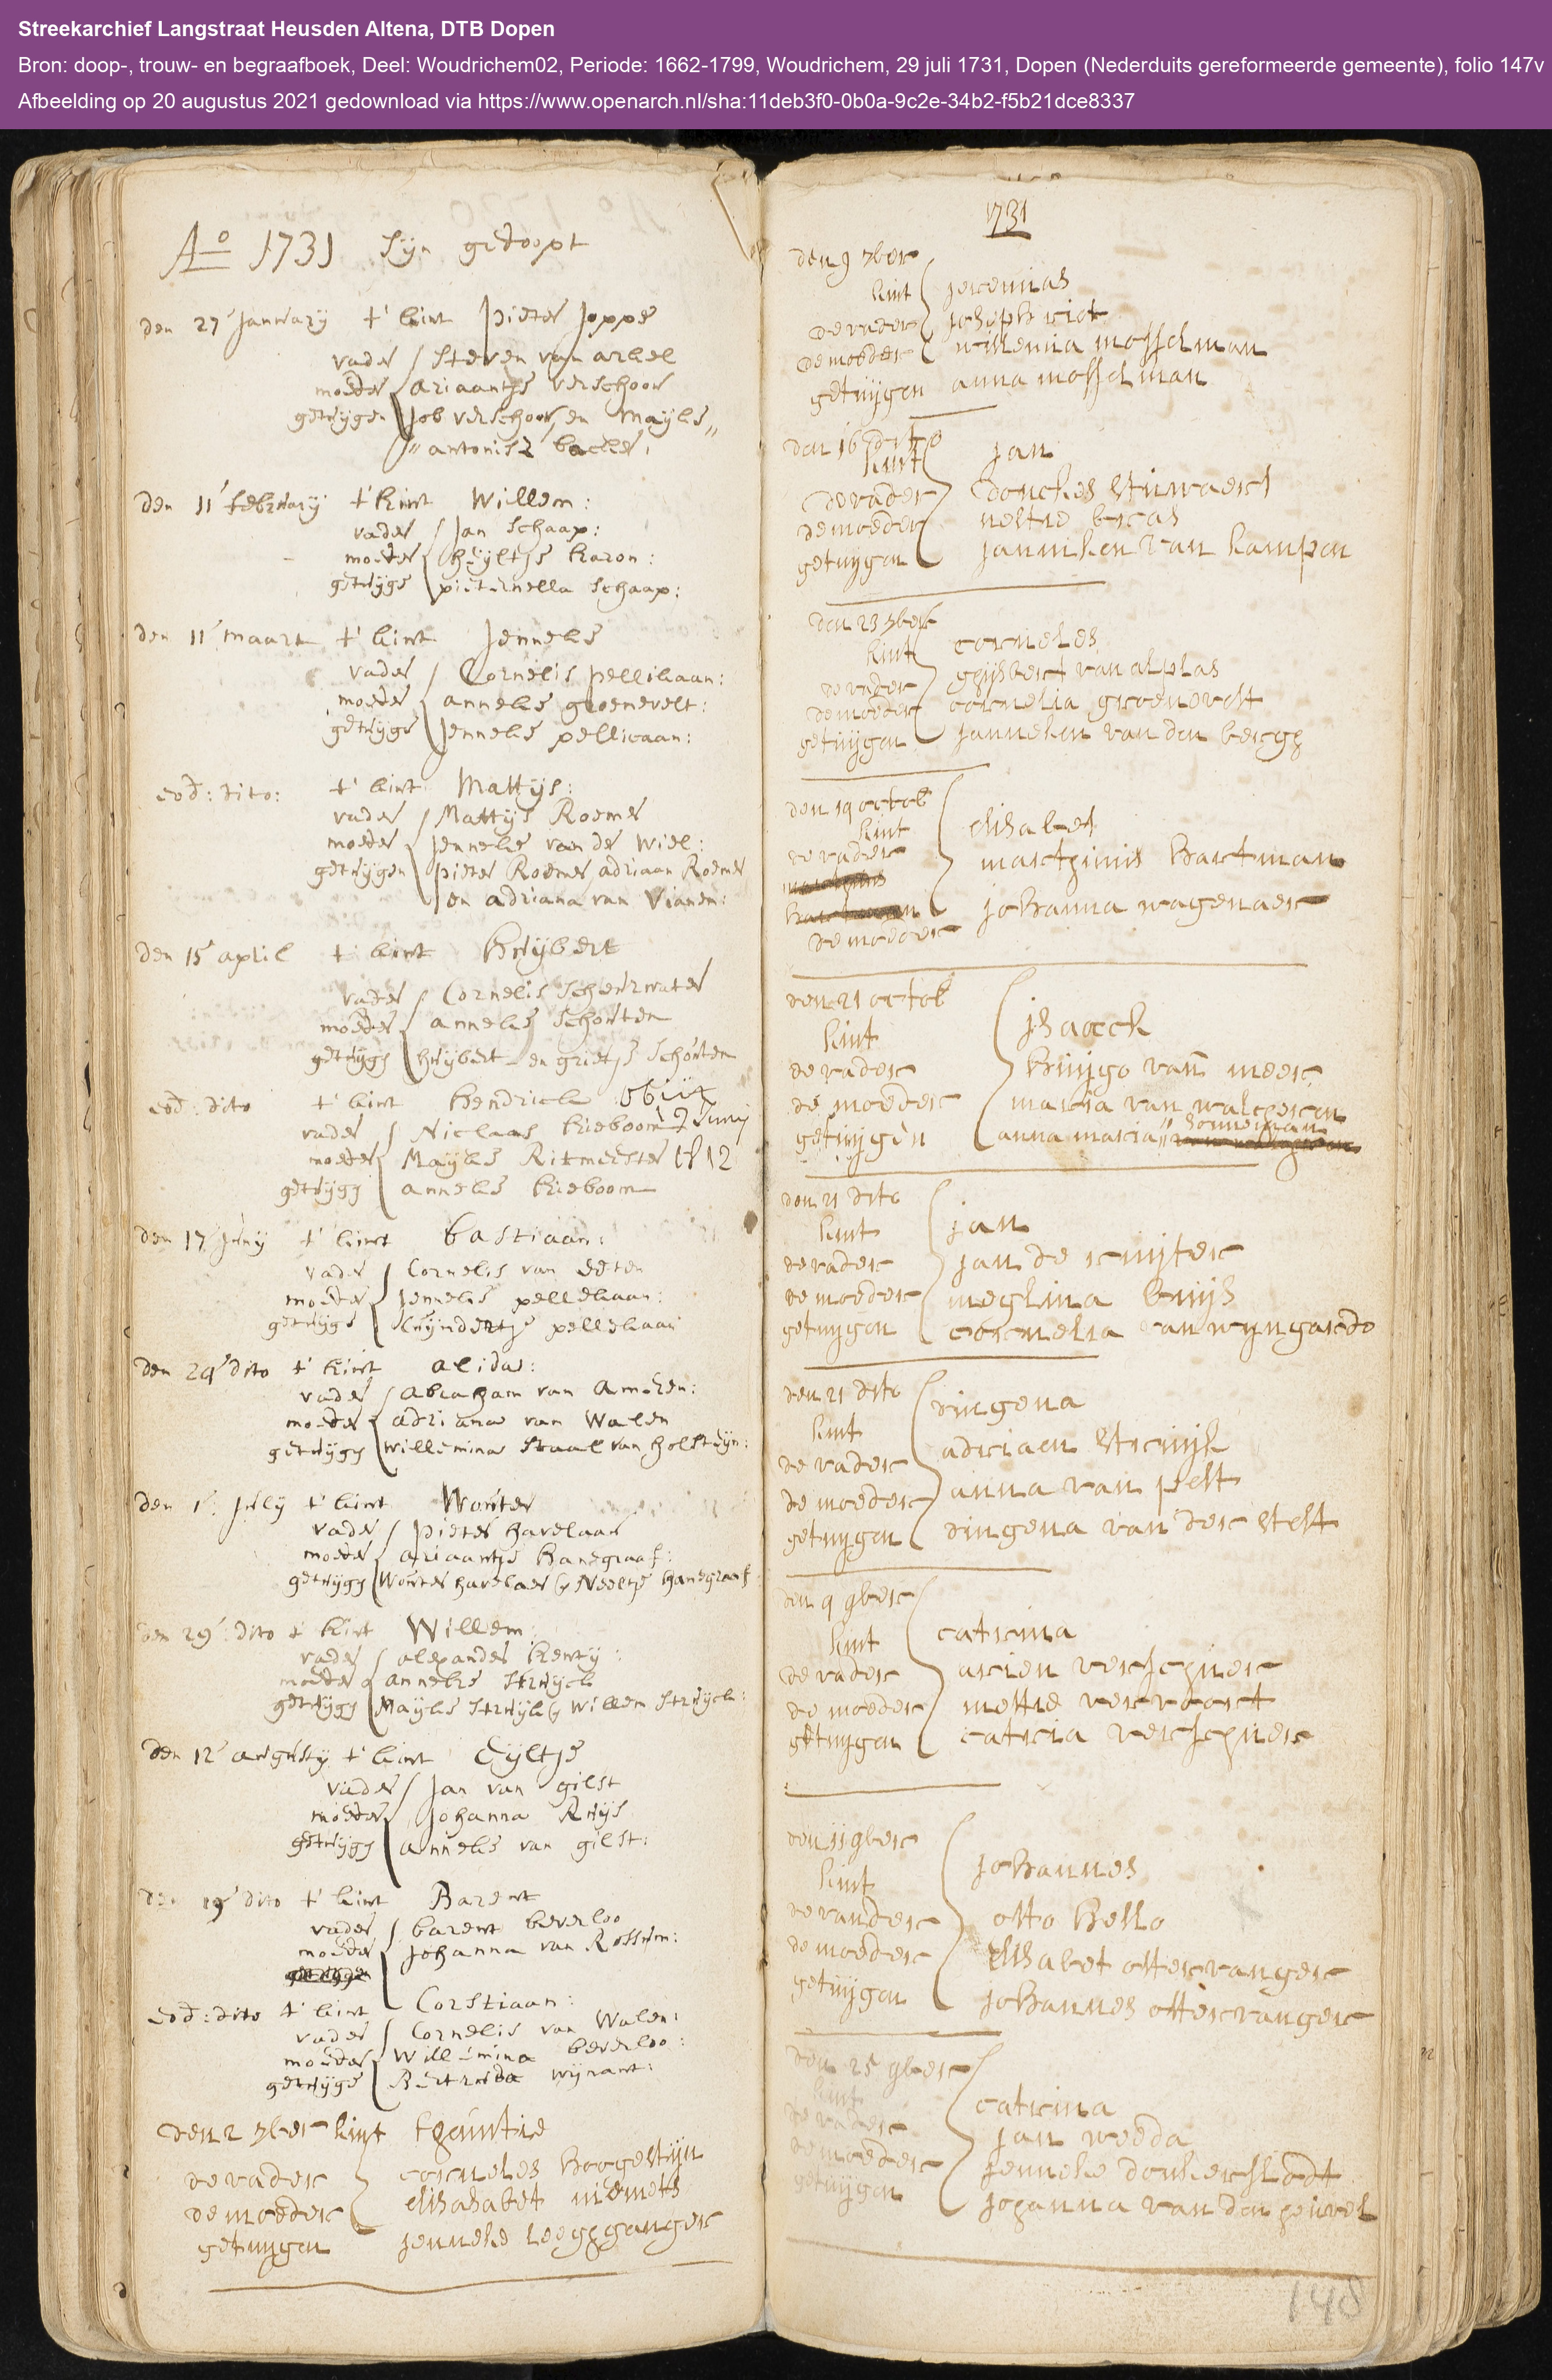 Streekarchief Langstraat Heusden Altena, DTB Dopen
Bron: doop-, trouw- en begraafboek, Deel: Woudrichem02, Periode: 1662-1799, Woudrichem, 29 juli 1731, Dopen (Nederduits gereformeerde gemeente), folio 147v
Afbeelding op 20 augustus 2021 gedownload via https://www.openarch.nl/sha:11deb3f0-0b0a-9c2e-34b2-f5b21dce8337
Ao 1731 Sijn gedoopt
den 27 January t' kint Pieter Joppe
vader Steven van arkel
moeder ariaantje verschoor
getuygen Job verschoor, en Mayke"
" antonisz backer,
den 11 february t' kint Willem:
vader Jan Schaap:
moeder huyltje karon:
getuyge pieternella Schaap:
den 11 maart t' kint Jenneke
vader Cornelis pellikaan:
moeder anneke groenevelt:
getuyge Jenneke pellicaan:
eod: dito: t' kint Mattijs:
vader Mattijs Roemer
moeder Jenneke van de Wiel:
getuygen pieter Roemer adriaan Roemer
en adriana van Vianen:
den 15 april t kint Huybert
vader Cornelis Scheurwater
moeder anneke Schouten
getuyge huybert en grietje Schouten
eod: dito t' kint hendrick obiit
vader Niclaas kieboom 2 Juny
moeder Mayke Ritmeester 1812
getuyge anneke kieboom
den 17 Juny t' kint bastiaan:
vader Cornelis van eeten
moeder Jenneke pellekaan:
getuyge leyndertje pellekaan
den 24 dito t' kint alida:
vader abraham van Ameren:
moeder adriana van Walen
getuyge willemina Staal van holsteyn:
den 1 July t' kint Wouter
vader pieter havelaar
moeder ariaantje hanegraaf:
getuyge Wouter havelaer & Neeltje hanegraaf
den 29 dito t kint Willem:
vader alexander kenty:
moeder anneke Struyck
getuyge Mayke Struyk & Willem Struyck:
den 12 augusty t' kint Eyltje
vader Jan van gilst
moeder Johanna Ruys
getuyge anneke van gilst:
den 19 dito t' kint Barent
vader barent beverloo
moeder Johanna van Rossum:
eod: dito t' kint Corstiaan:
vader Cornelis van Walen:
moeder Willemina beverloo:
getuyge Bertruda wijnant:
den 2 7ber kint
de vader corneles hoogestijn
de moeder elisabet
getuygen jenneke leeghganger
1731
den 9 7ber
kint jeremias
de vader joseph
de moeder willemia mosselman
getuijgen anna mosselman
den 16 dito
kint jan
de vader
de moeder neltie
getuijgen janniken van kampen
den 23 7ber
kint corneles
de vader gijsbert van alplas
de moeder cornelia groenevelt
getuijgen janneken van den bergh
den 19 octob
kint elisabet
de vader martijnus hartman
de moeder johanna wagenaer
den 21 octob
kint jsaack
de vader huijgo van meer
de moeder maria van walcheren
getuijgen anna maria " sonneman
den 21 dito
kint jan
de vader jan de ruijter
de moeder meghina buijs
getuijgen cornelia van wijngaerde
den 21 dito dingena
kint
de vader adriaen struijk
de moeder anna van pelt
getuijgen dingena van der stelt
den 9 9ber
kint catrina
de vader arien verschuer
de moeder mettie vervoort
getuijgen catria verschuer
den 11 9ber
kint johannes
de vander otto hello
de moeder elisabet ottervanger
getuijgen johannes ottervanger
den 25 9ber
kint catrina
de vader jan weeda
de moeder jenneke donkerslodt
getuijgen johanna van den heuvel
148